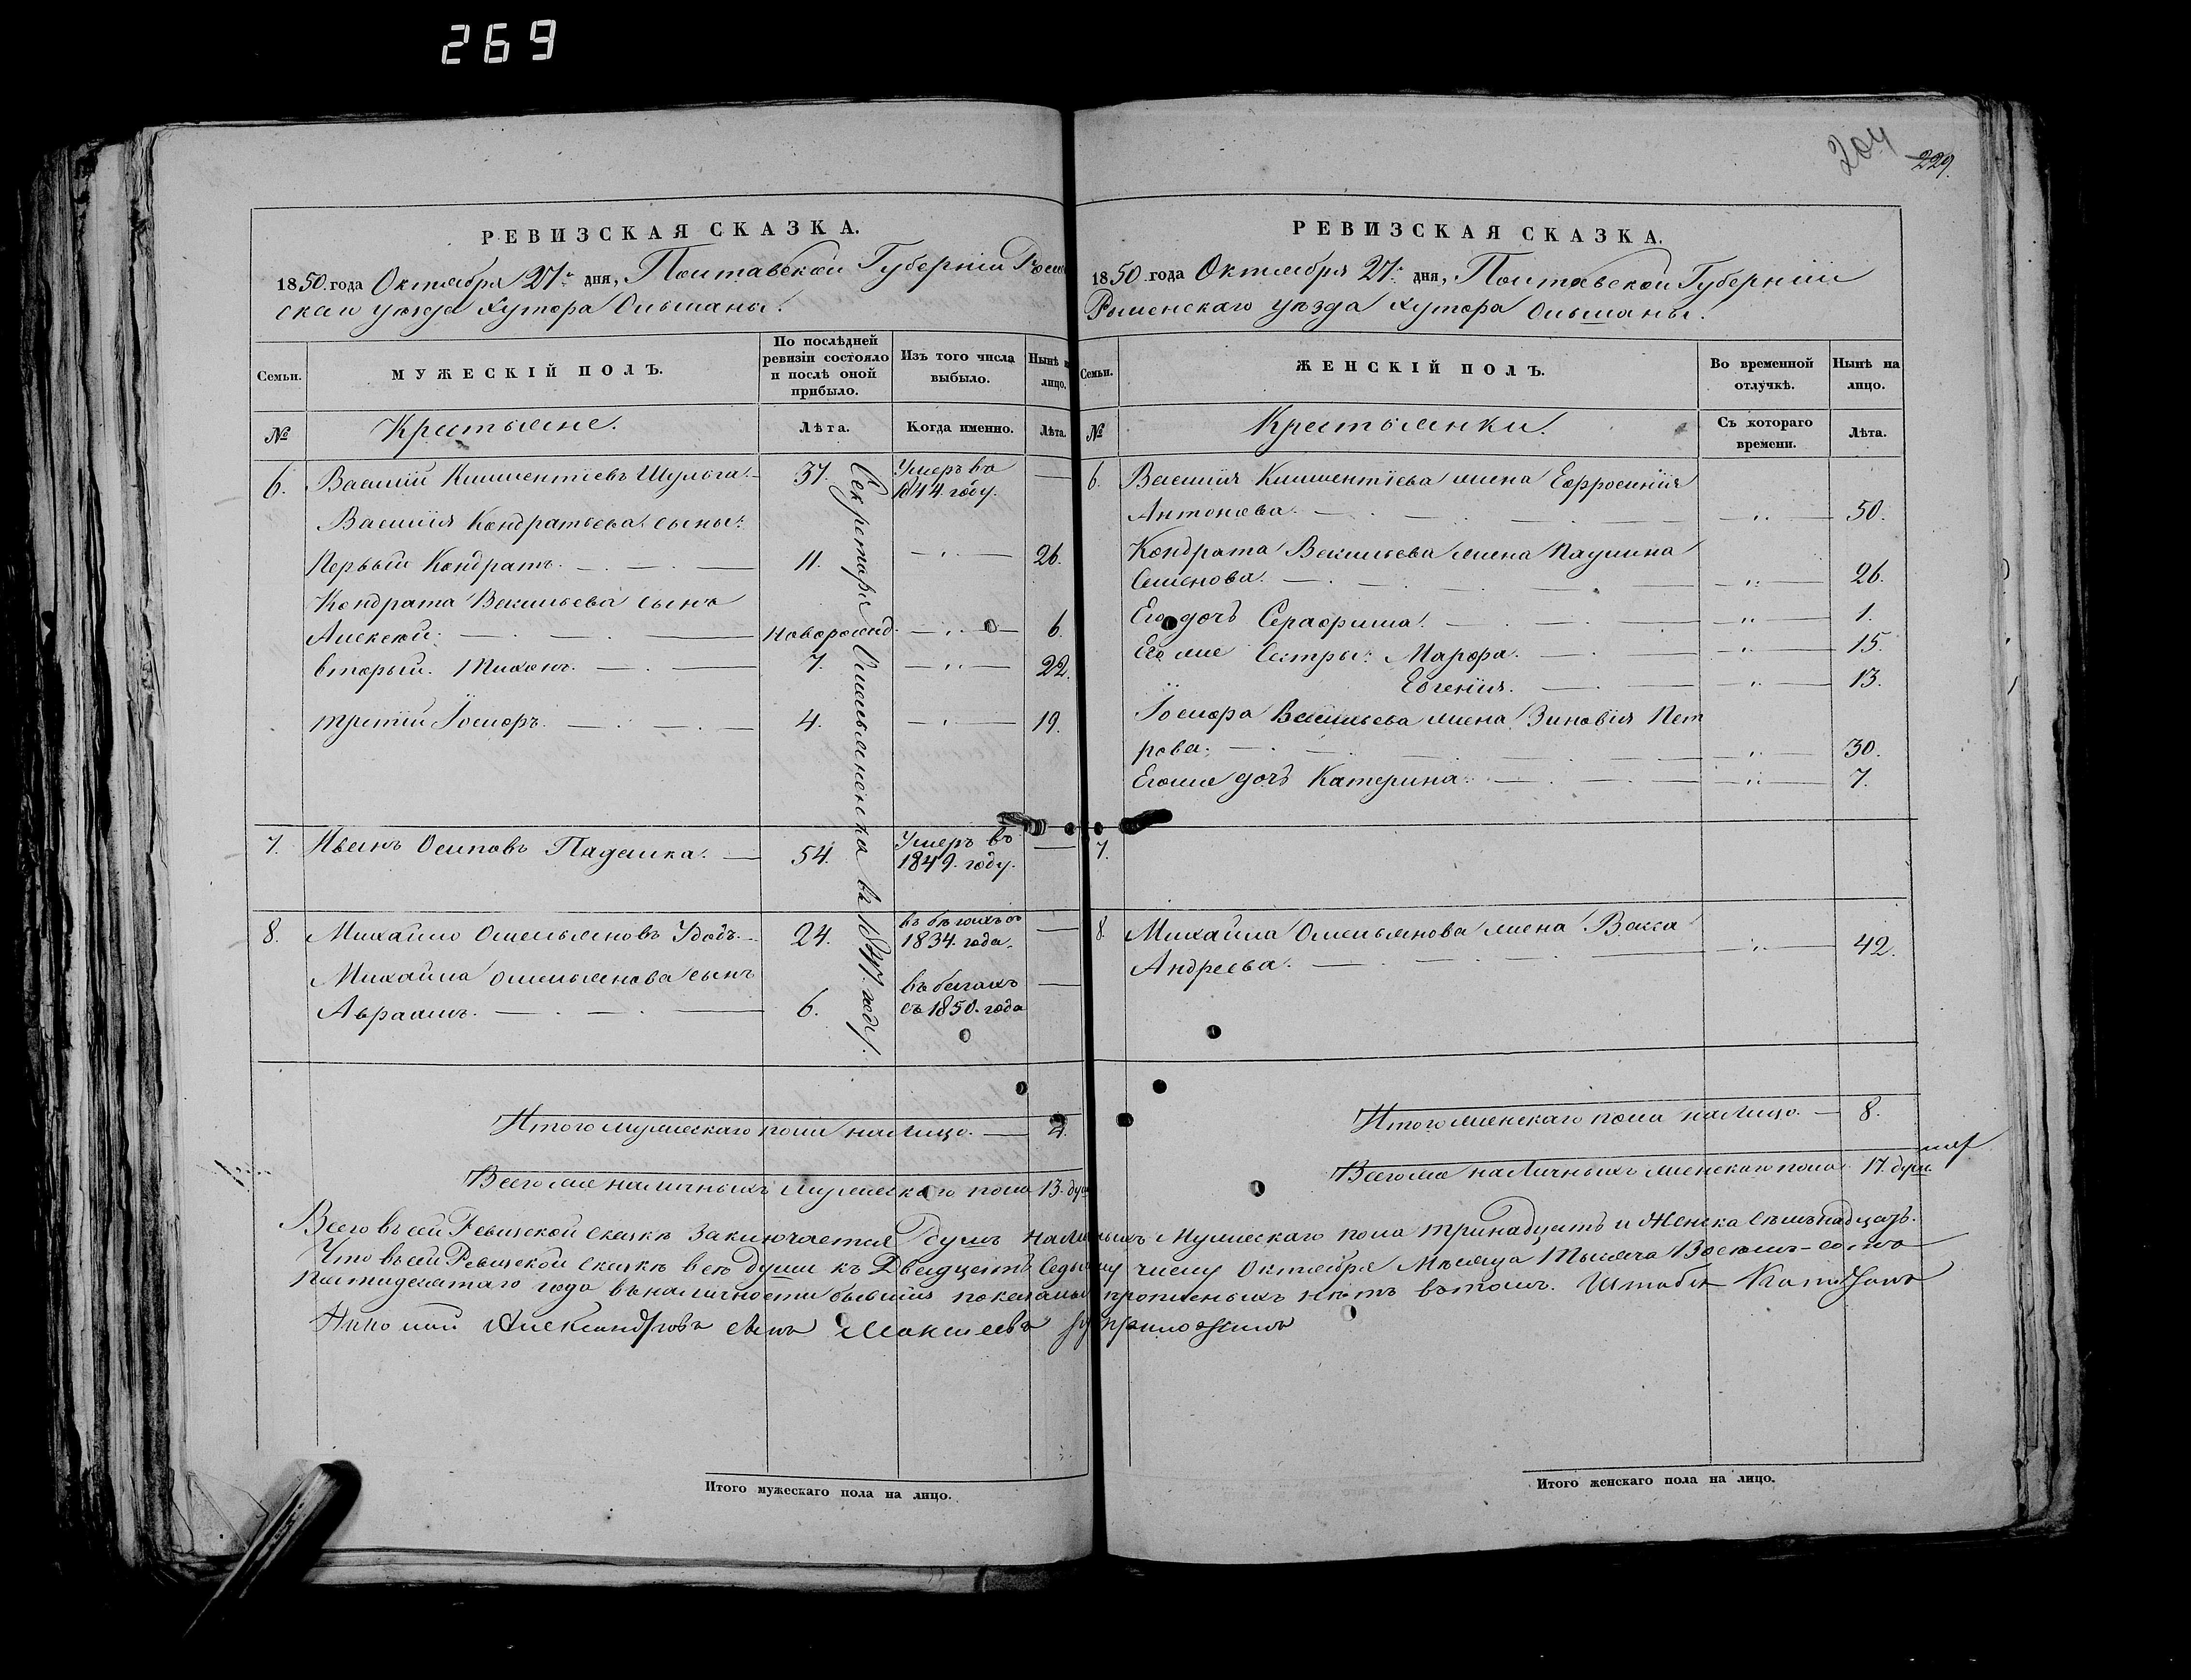 269
204
229.
РЕВИЗСКАЯ СКАЗКА.
1850 года Октября 27го дня, Полтавской Губерніи Ромен
скаго уезда Хутора Ольшаны.
Семьи.
МУЖЕСКІЙ ПОЛЪ.
По послѣдней ревизіи состояло и послѣ оной прибыло.
Изъ того числа выбыло.
Нынѣ на лицо.
№
Крестьяне.
Лѣта.
Когда именно.
Лѣта.
6. Василій Климентіевъ Шульга. 37. Умеръ въ 1844. году. —
Василія сыны:
Первый Кондратъ. 11. — 26.
Кондрата Васильева сынъ
Алексѣй. новорожд. — 6.
вторый. Тихонъ. 7. — 22.
третій Іосифъ. 4. — 19.
7. Иванъ Осиповъ Падалка. 54. Умеръ въ 1849. году. —
8. Михайло Омельяновъ Удодъ. 24. въ бѣгахъ съ 1834. года. —
Михайла Омельянова сынъ
Авраамъ. 6. въ бегахъ съ 1850. года —
Итого мужескаго пола на лицо. — 4.
Всего же наличныхъ мужескаго пола 13. душ
Итого мужескаго пола на лицо.
РЕВИЗСКАЯ СКАЗКА.
1850 года Октября 27го дня, Полтавской Губерніи
Роменскаго уѣзда хутора Ольшаны.
Семьи.
ЖЕНСКІЙ ПОЛЪ.
Во временной отлучкѣ.
Нынѣ на лицо.
№
Крестьянки.
Съ котораго времени.
Лѣта.
6. Василія Климентіева жена Ефросинія
Антонова. — 50.
Кондрата Васильева жена Паулина
Семенова. — 26.
Его дочь Серафима. — 1.
Его же Сестры: Марфа. — 15.
Евгенія. — 13.
Іосифа Васильева жена Зиновія Пет
рова. — 30.
Егоже дочь Катерина. — 7.
7.
8. Михайла Омельянова жена Васса
Андреева. — 42.
Итого женскаго пола на лицо. — 8.
Всего же наличныхъ женскаго пола 17. душ
Итого женскаго пола на лицо.
Всего въ сей Ревизской сказкѣ заключается душъ наличныхъ Мужескаго пола тринадцать и Женска семьнадцать.
Что въ сей Ревизской сказкѣ всѣ души къ Двадцать Седьмому числу Октября Мѣсяца Тысяча Восемь-сотъ
пятидесятаго года въ наличности бывшія показаны и прописныхъ нѣтъ въ томъ. Штабсъ Капитанъ
Александровъ сынъ руку приложилъ